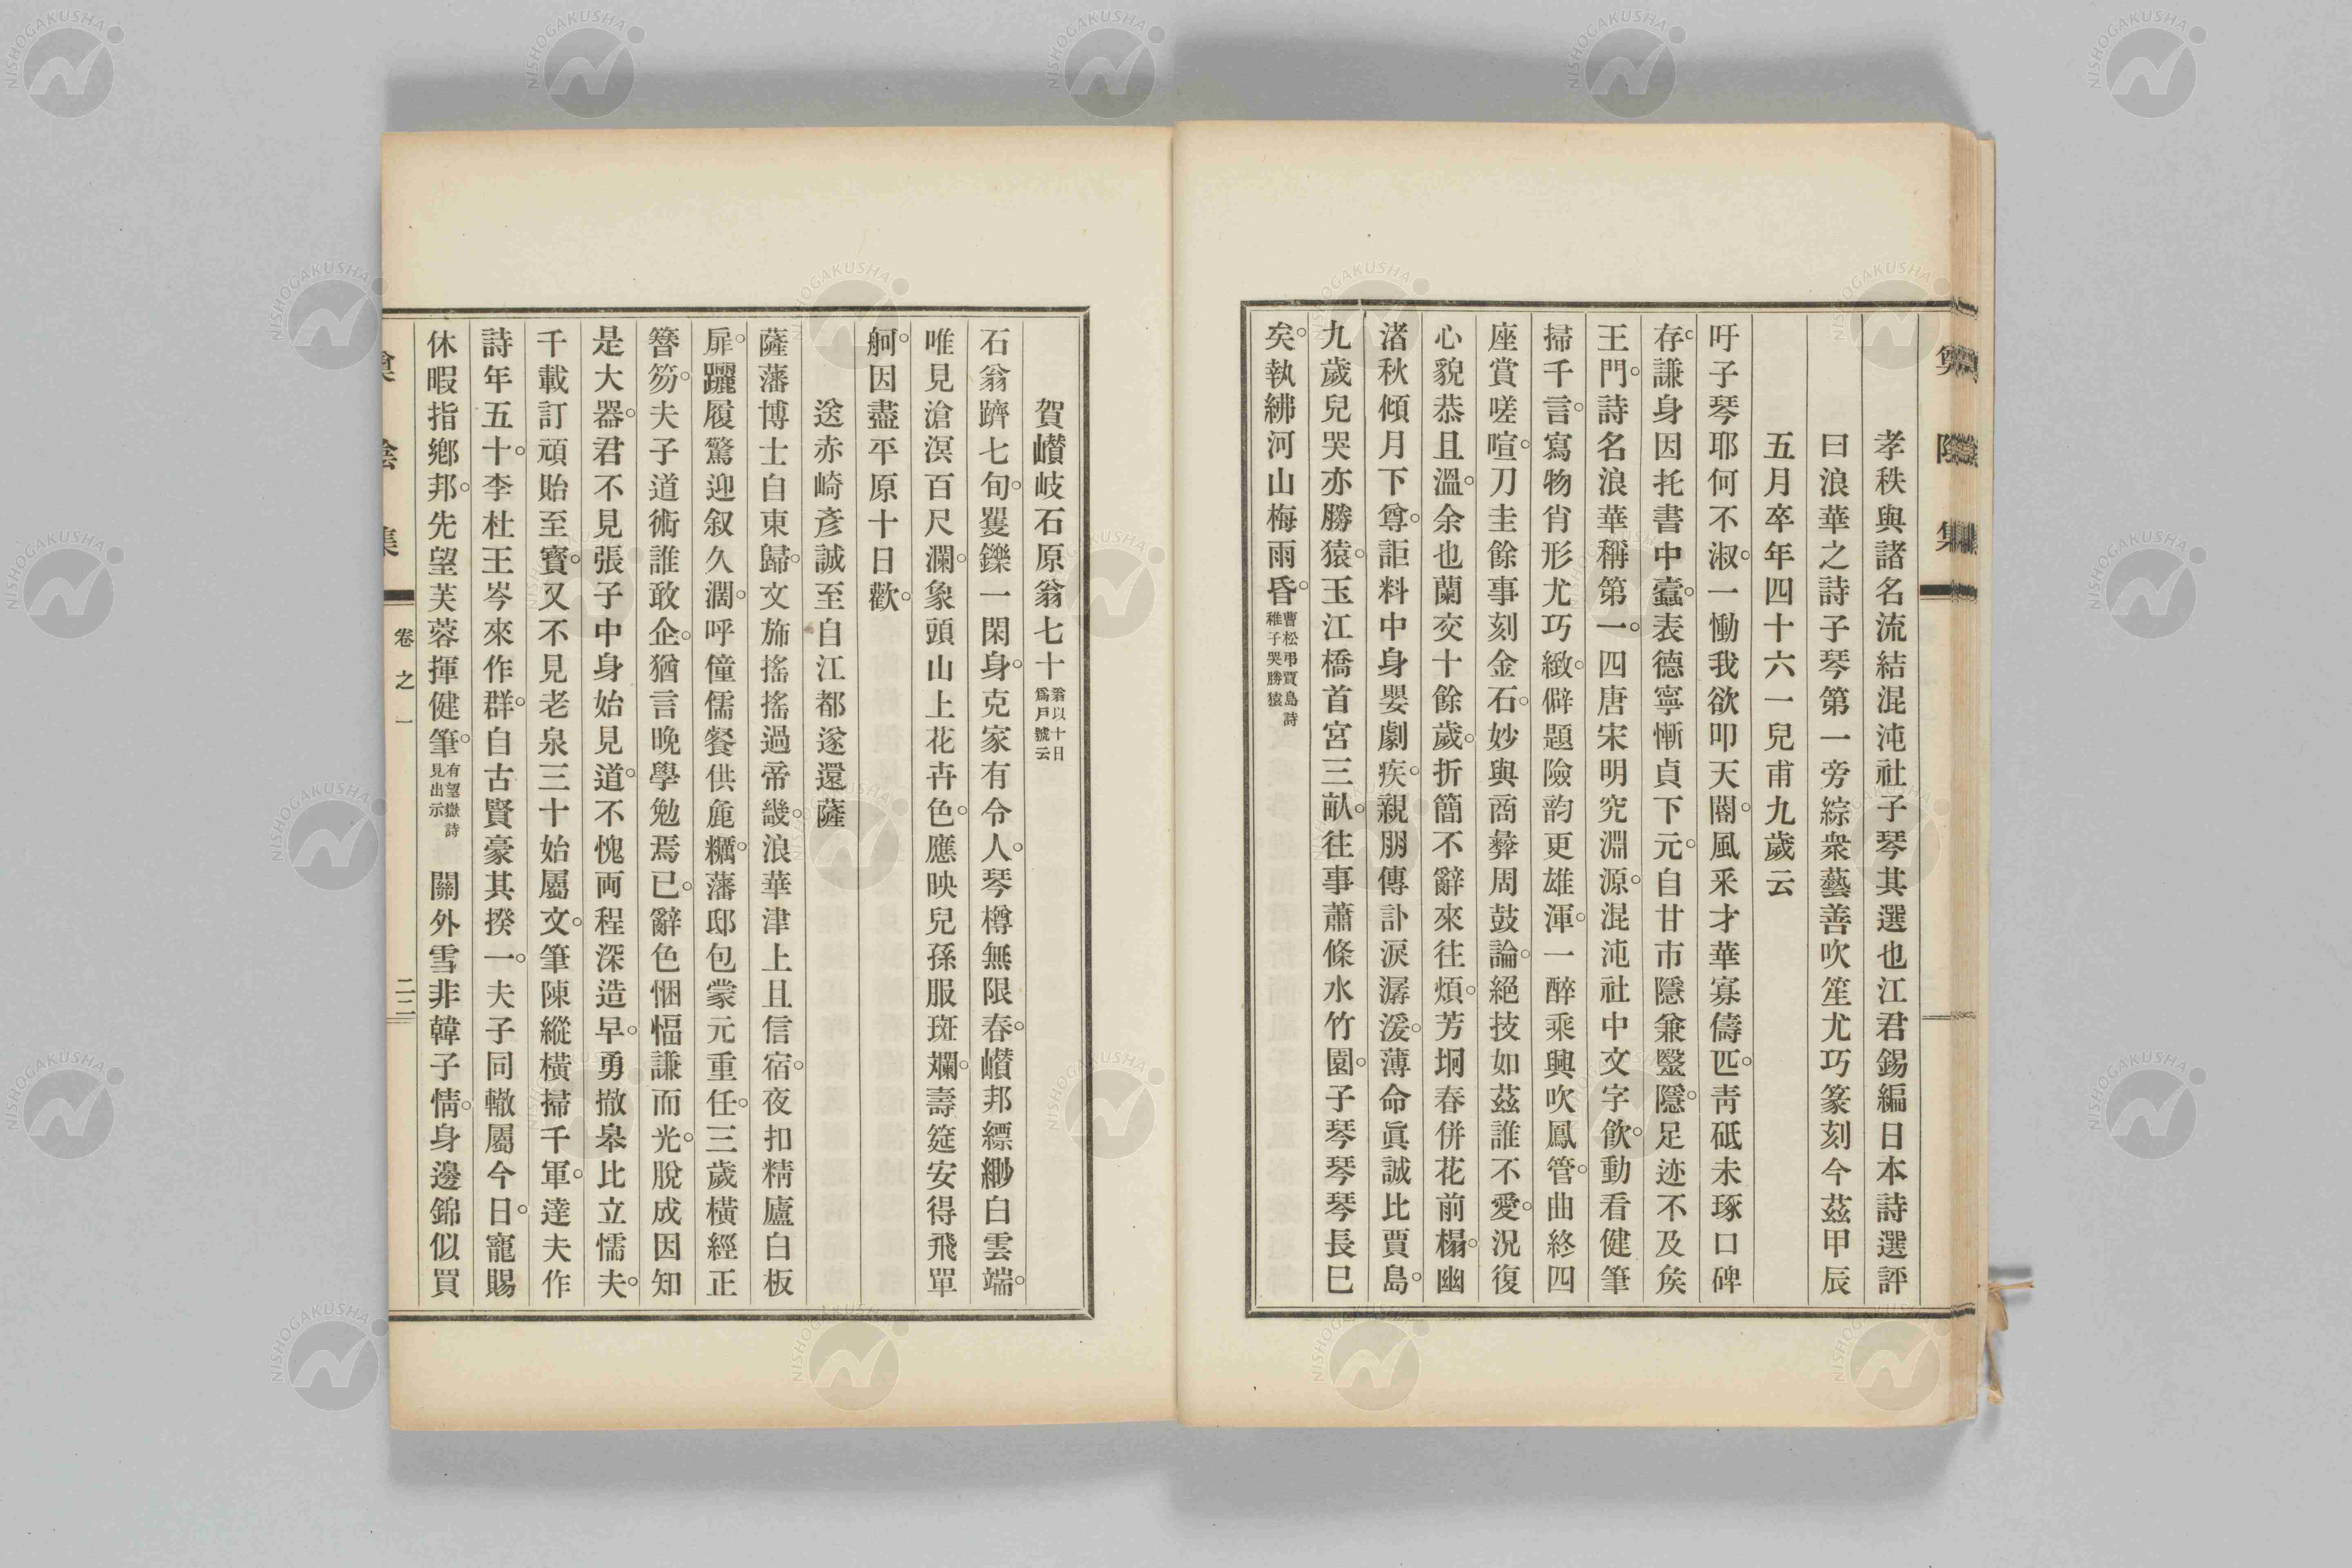 孝秩與諸名流結混沌社子琴其選也江君錫編日本詩選評
曰浪華之詩子琴第一旁綜衆藝善吹笙尤巧篆刻今茲甲辰
五月卒年四十六一兒甫九歲云
吁子琴耶何不淑。一慟我欲叩天闇。風釆才華寡儔匹。靑砥未琢口碑
存。謙身因托書中蠹。表德寧慚貞下元。自甘市隱兼毉隱。足迹不及矦
王門。詩名浪華稱第一。四唐宋明究淵源。混沌社中文字飮。動看健筆
掃千言。寫物肖形尤巧緻。僻題險韵更雄渾。一醉乘興吹鳳管。曲終四
座賞嗟喧。刀圭餘事刻金石。妙與商彝周鼓論。絕技如茲誰不愛。況復
心貌恭且溫。余也蘭交十餘歲。折簡不辭來往煩。芳坰春併花前榻。幽
渚秋傾月下尊。詎料中身嬰劇疾。親朋傳訃淚潺湲。薄命眞誠比賈島。
九歲兒哭亦勝猿。玉江橋首宮三畝。往事蕭條水竹園。子琴琴琴長已
矣。執紼河山梅雨昏。曹松弔賈島詩稚子哭勝猿
賀巑岐石原翁七十翁以十日爲戶號云
石翁躋七旬。矍鑠一閑身。克家有令人。琴樽無限春。巑邦縹緲白雲端。
唯見滄溟百尺瀾。象頭山上花卉色。應映兒孫服斑斕。壽筵安得飛單
舸。因盡平原十日歡。
送赤崎彥誠至自江都遂還薩
薩藩博士自東歸。文旆搖搖過帝畿。浪華津上且信宿。夜扣精廬白板
扉。躧履驚迎叙久濶。呼僮儒餐供麁糲。藩邸包蒙元重任。三歲橫經正
簪笏。夫子道術誰敢企。猶言晩學勉焉已。辭色悃愊謙而光。脫成因知
是大器。君不見張子中身始見道。不愧両程深造早。勇撤皋比立懦夫。
千載訂頑貽至寶。又不見老泉三十始屬文。筆陳縱橫掃千軍。達夫作
詩年五十。李杜王岑來作群。自古賢豪其揆一。夫子同轍屬今日。寵賜
休暇指鄕邦。先望芙蓉揮健筆。有望嶽詩見出示關外雪非韓子情。身邊錦似買
卷之一
二二